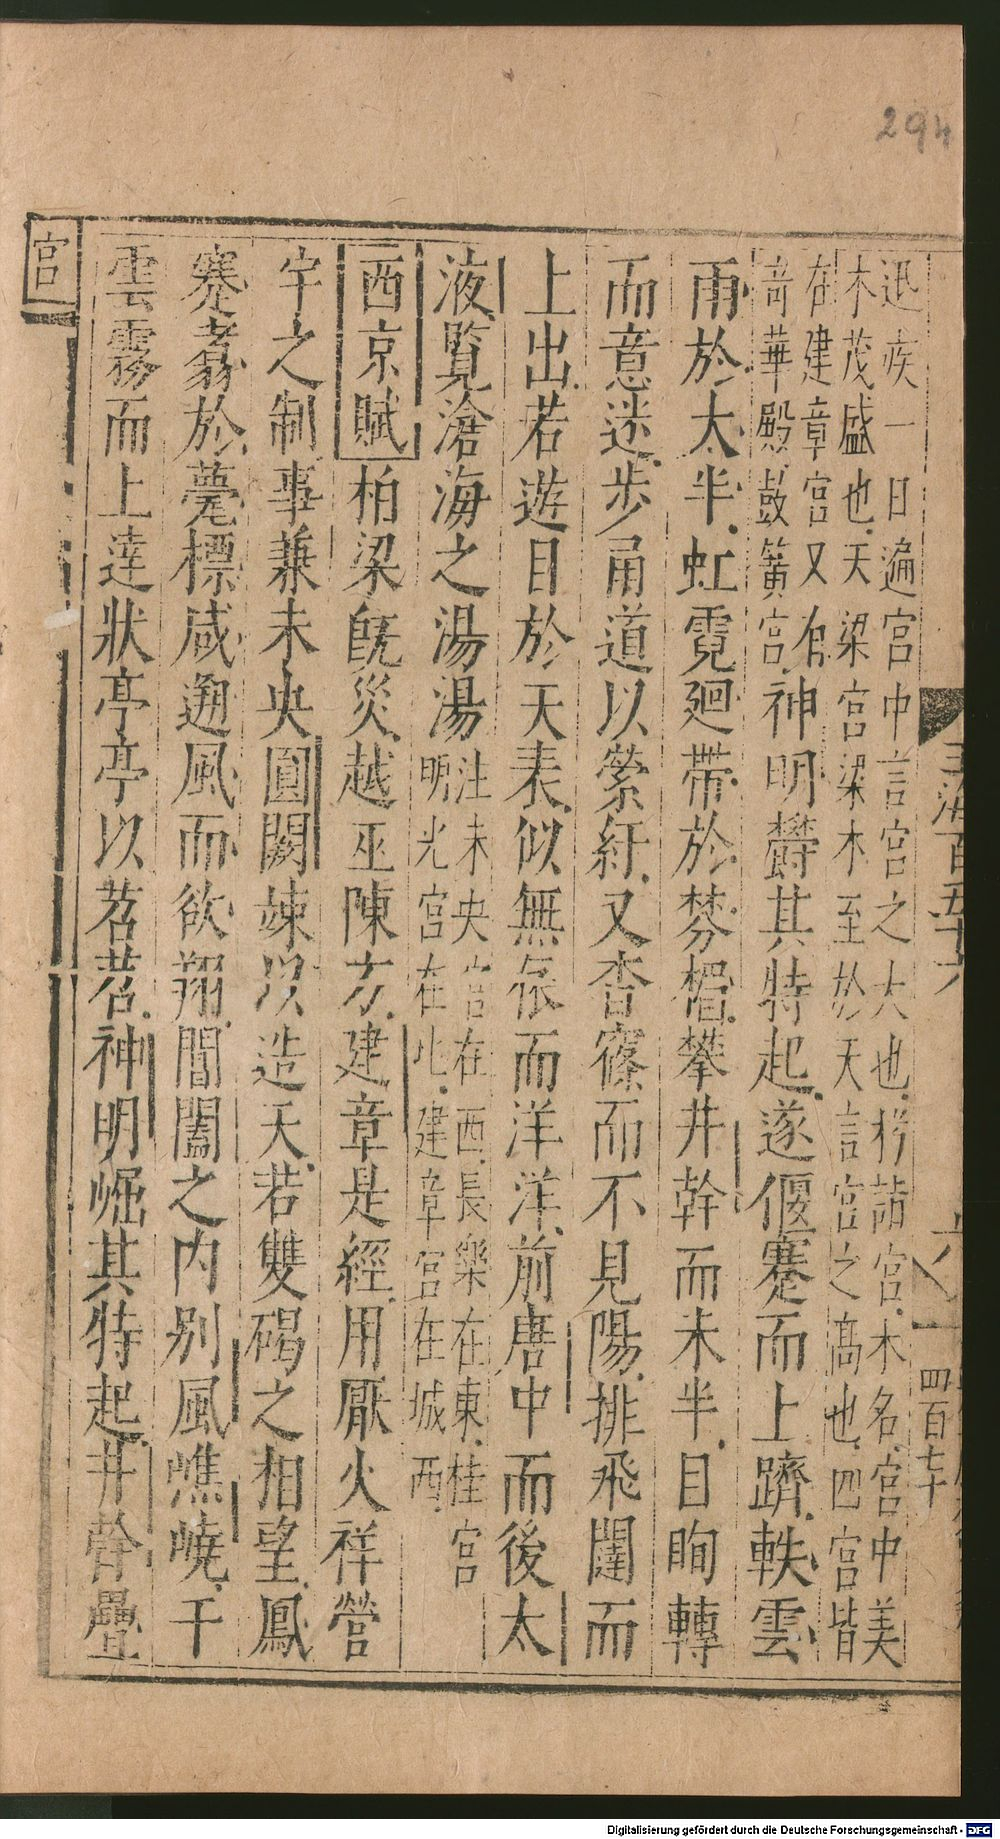 294
迅疾一日遍宮中言宮之大也枍詣宮木名宮中美
木茂盛也天梁宮梁木至於天言宮之高也四宮皆
在建章宮又有
奇華殿鼓簧宮
神明欝其特起遂偃蹇而上躋軼雲
雨於太半虹霓廻帶於棼楣攀井幹而未半目眴轉
而意迷步甬道以縈紆又杳窱而不見陽排飛闥而
上出若遊目於天表似無依而洋洋前唐中而後太
液覽滄海之湯湯
注未央宮在西長樂在東桂宮
明光宮在北建章宮在城西
西京賦柏梁旣災越巫陳方建章是經用厭火祥營
宇之制事兼未央圓闕竦以造天若雙碣之相望鳳
騫翥於甍標咸遡風而欲翔閶闔之内别風嶕嶢干
雲霧而上達狀亭亭以苕苕神明崛其特起井幹疊
宮
玉海百五十六
六
四百七十
Digitalisierung gefördert durch die Deutsche Forschungsgemeinschaft - DFG